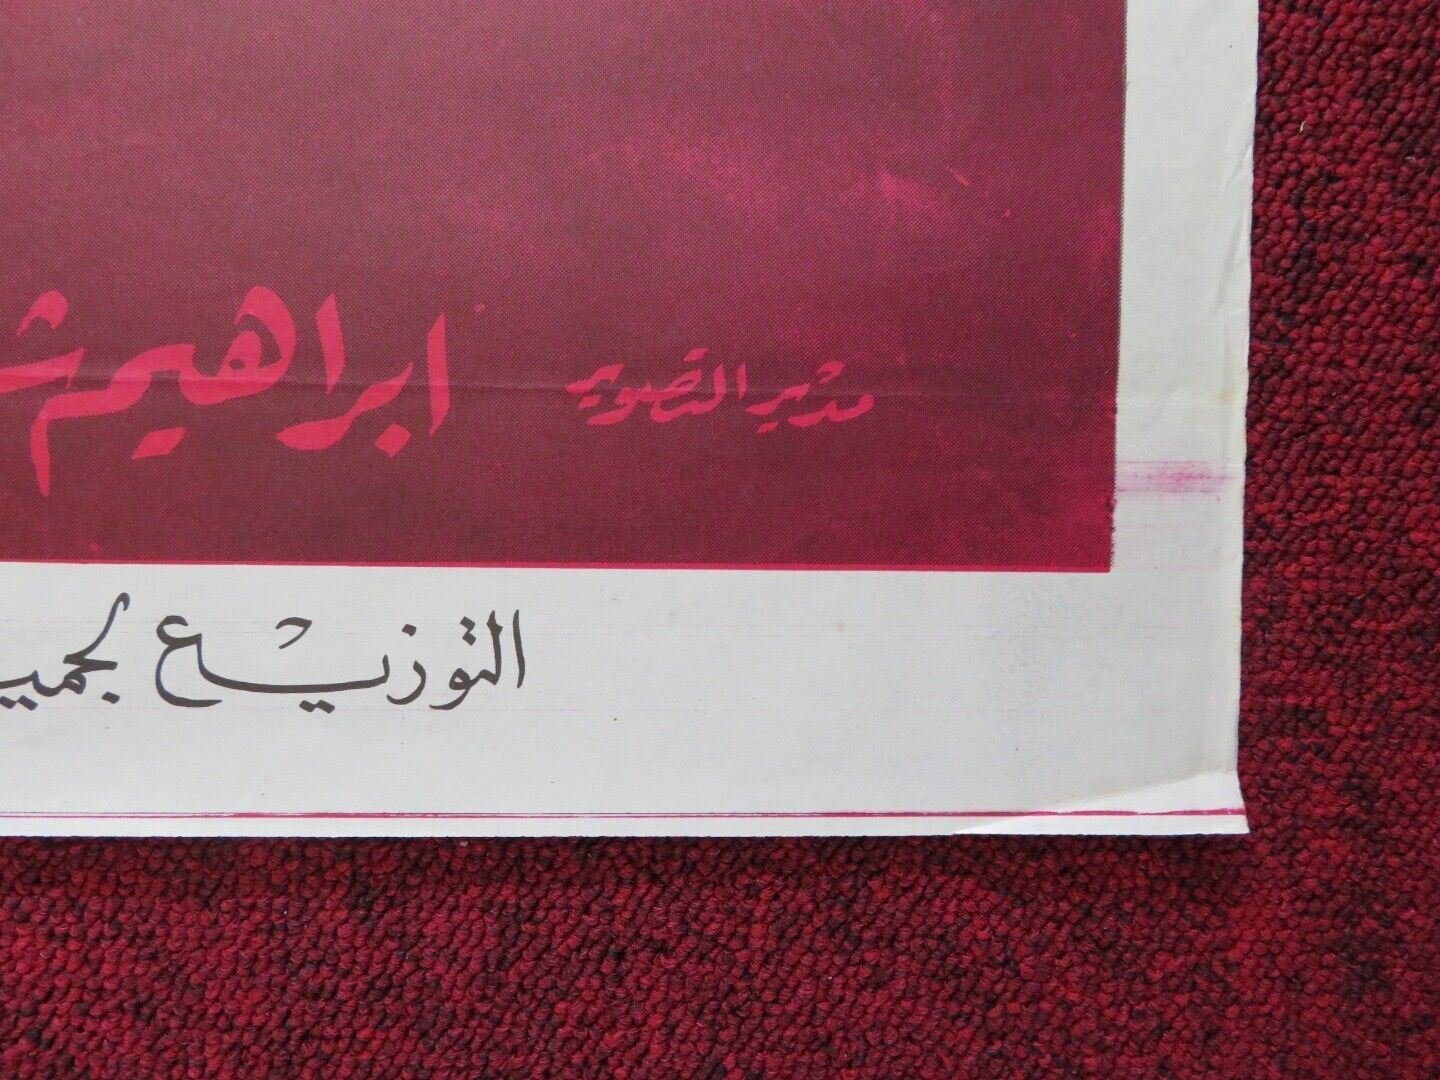 مدير التصوير ابراهيم
التوزيع